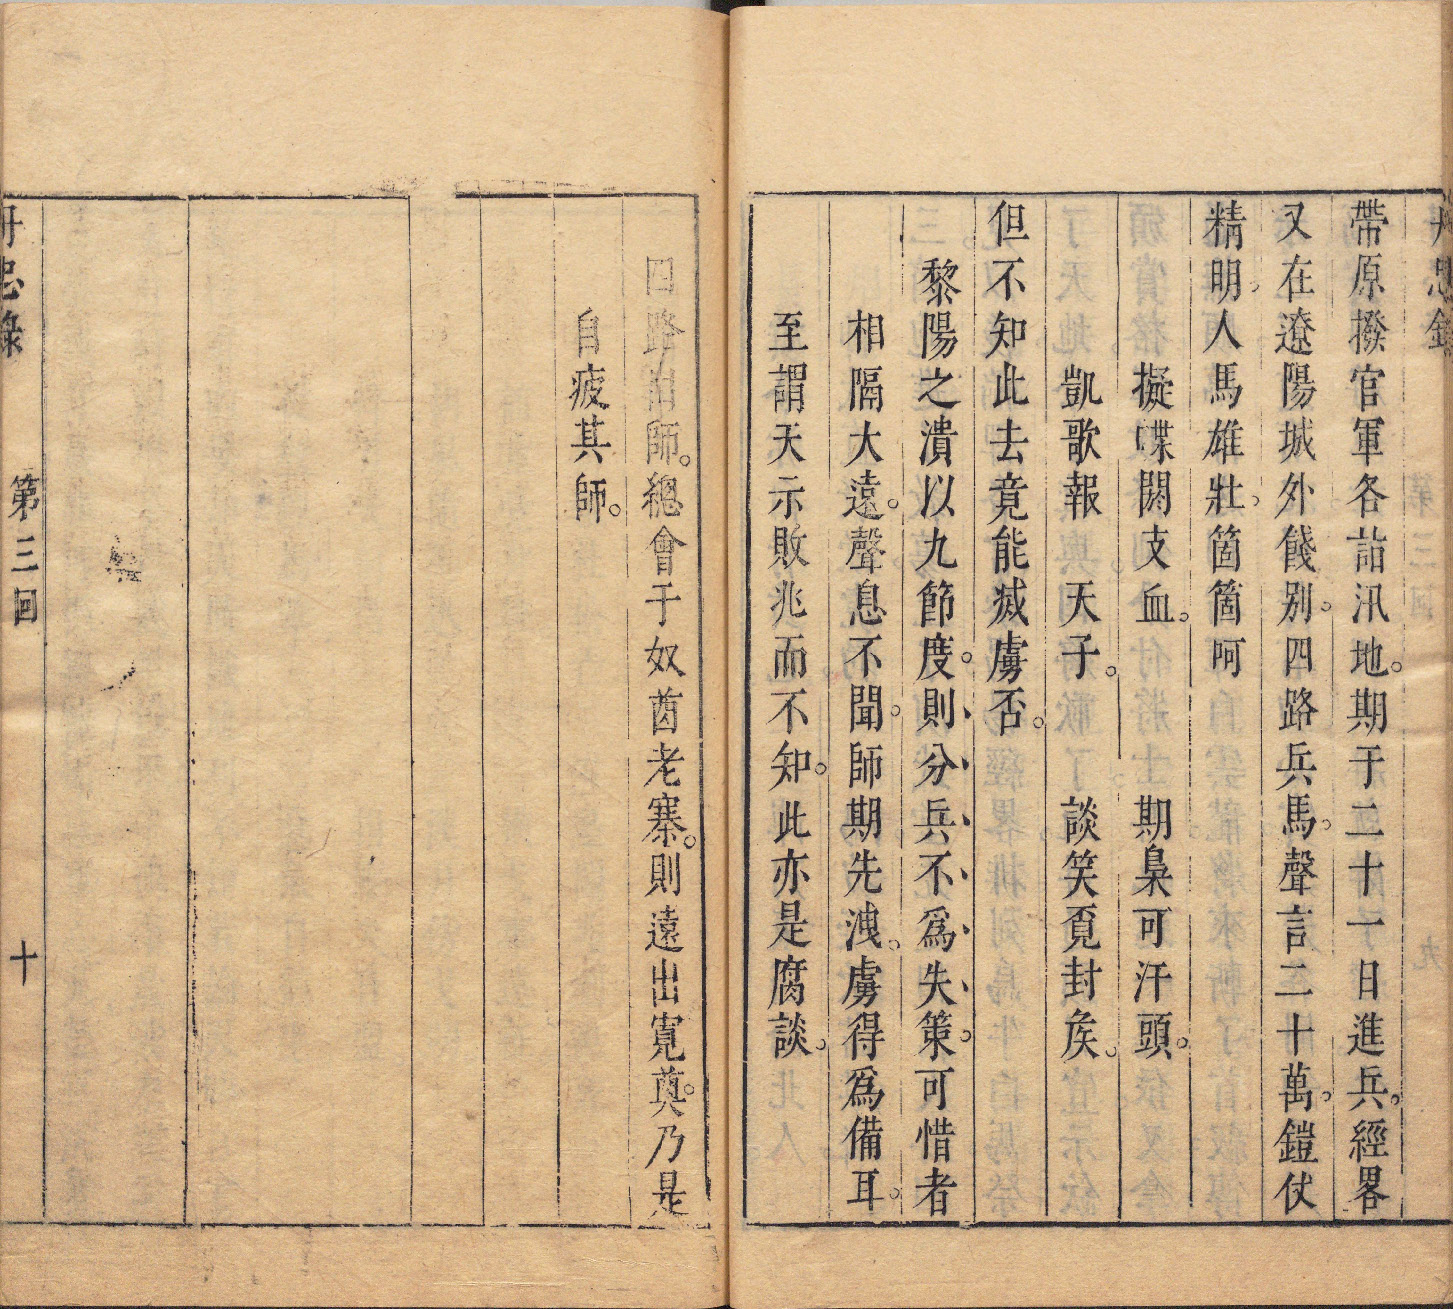 帶原撥官軍各詣汛地。期于二十一日進兵。經畧
又在遼陽城外餞別。四路兵馬。聲言二十萬。鎧仗
精明。人馬雄壯。箇箇呵
擬喋閼支血。期梟可汗頭。
凱歌報天子。談笑覔封矦。
但不知此去竟能滅虜否。
黎陽之潰以九節度。則分兵不爲失策。可惜者
相隔大遠。聲息不聞。師期先洩。虜得爲備耳。
至謂天示敗兆而不知。此亦是腐談。
四路出師。總會于奴酋老寨。則遠出寬奠。乃是
自疲其師。
丹忠錄 第三回 十